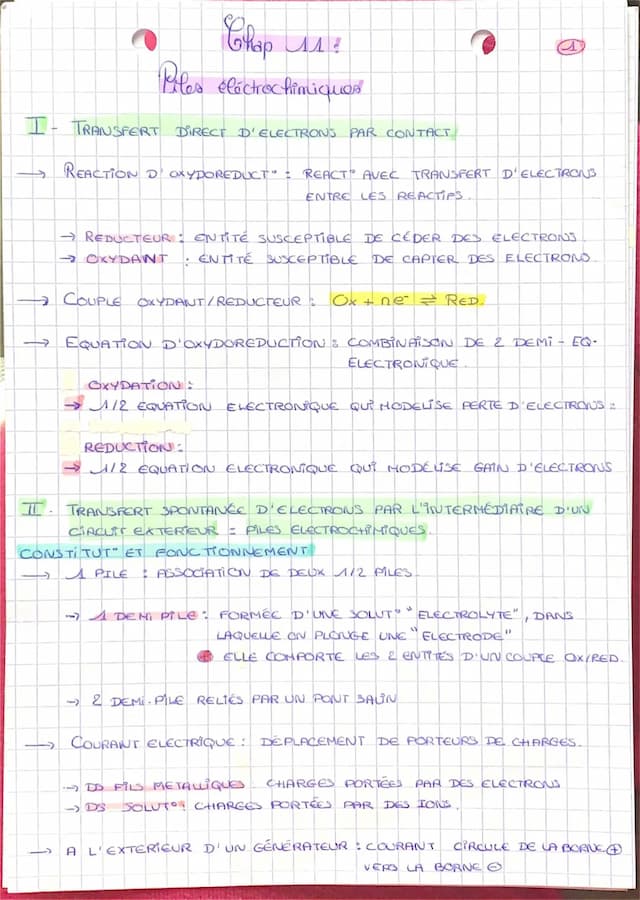 Chap 11:
1
Piles éléctrochimiques
I - TRANSFERT DIRECT D'ELECTRONS PAR CONTACT
→ REACTION D'OXYDOREDUCT° : REACT° AVEC TRANSFERT D'ELECTRONS
ENTRE LES REACTIFS.
→ REDUCTEUR : ENTITÉ SUSCEPTIBLE DE CÉDER DES ELECTRONS.
→ OXYDANT : ENTITÉ SUSCEPTIBLE DE CAPTER DES ELECTRONS.
→ COUPLE OXYDANT/REDUCTEUR : Ox + ne⁻ ⇌ RED.
→ EQUATION D'OXYDOREDUCTION : COMBINAISON DE 2 DEMI-EQ.
ELECTRONIQUE.
OXYDATION :
→ 1/2 EQUATION ELECTRONIQUE QUI MODELISE PERTE D'ELECTRONS :
REDUCTION :
→ 1/2 ÉQUATION ELECTRONIQUE QUI MODÉLISE GAIN D'ELECTRONS
II. TRANSFERT SPONTANÉE D'ELECTRONS PAR L'INTERMÉDIAIRE D'UN
CIRCUIT EXTERIEUR = PILES ELECTROCHIMIQUES.
CONSTITUT° ET FONCTIONNEMENT
→ 1 PILE : ASSOCIATION DE DEUX 1/2 PILES.
→ 1 DEMI PILE : FORMÉE D'UNE SOLUT° "ELECTROLYTE", DANS
LAQUELLE ON PLONGE UNE "ELECTRODE"
+ ELLE COMPORTE LES 2 ENTITÉS D'UN COUPLE OX/RED.
→ 2 DEMI-PILE RELIÉS PAR UN PONT SALIN
→ COURANT ELECTRIQUE : DÉPLACEMENT DE PORTEURS DE CHARGES.
→ DS FILS METALLIQUE CHARGES PORTÉES PAR DES ELECTRONS
→ DS SOLUT° : CHARGES PORTÉES PAR DES IONS.
→ A L'EXTERIEUR D'UN GÉNÉRATEUR : COURANT CIRCULE DE LA BORNE ⊕
VERS LA BORNE ⊖